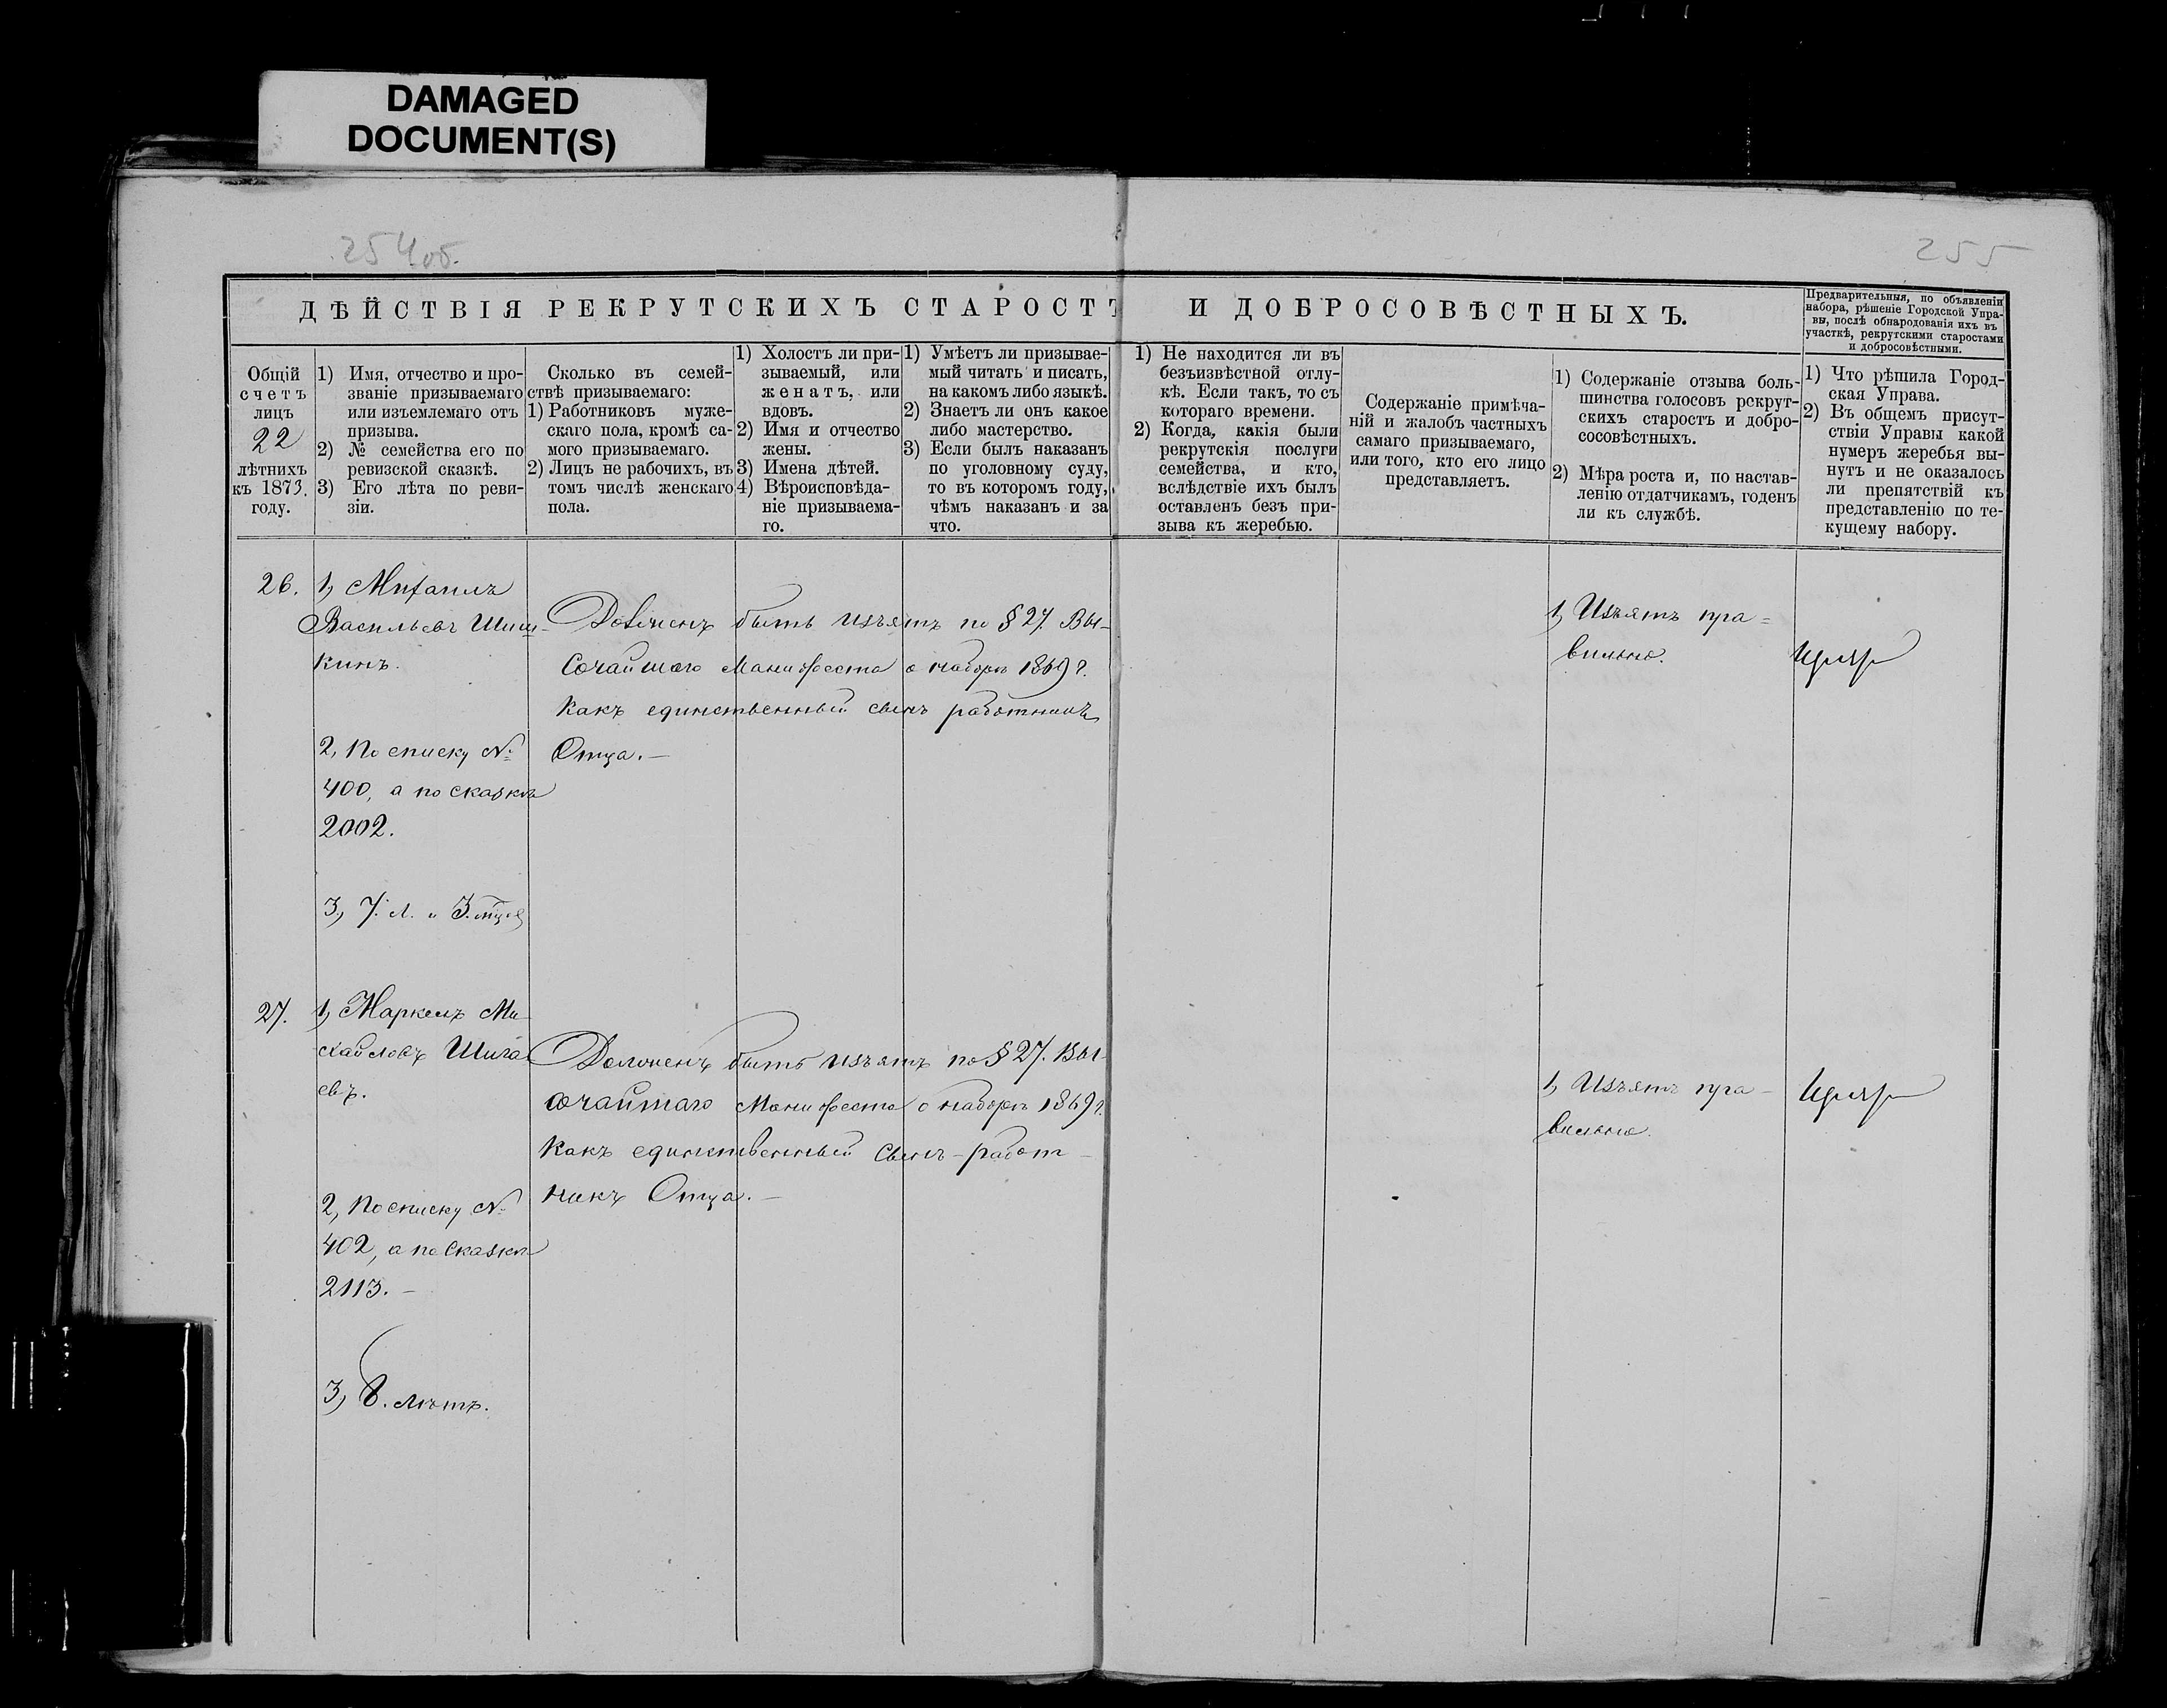 DAMAGED
DOCUMENT(S)
254об.
255
ДѢЙСТВІЯ РЕКРУТСКИХЪ СТАРОСТЪ И ДОБРОСОВѢСТНЫХЪ.
Предварительныя, по объявленіи
набора, рѣшеніе Городской Упра-
вы, послѣ обнародованія ихъ въ
участкѣ, рекрутскими старостами
и добросовѣстными.
Общій
счетъ
лицъ
22
лѣтнихъ
къ 1873.
году.
1) Имя, отчество и про-
званіе призываемаго
или изъемлемаго отъ
призыва.
2) № семейства его по
ревизской сказкѣ.
3) Его лѣта по реви-
зіи.
Сколько въ семей-
ствѣ призываемаго:
1) Работниковъ муже-
скаго пола, кромѣ са-
мого призываемаго.
2) Лицъ не рабочихъ, въ
томъ числѣ женскаго
пола.
1) Холостъ ли при-
зываемый, или
женатъ, или
вдовъ.
2) Имя и отчество
жены.
3) Имена дѣтей.
4) Вѣроисповѣда-
ніе призываема-
го.
1) Умѣетъ ли призывае-
мый читать и писать,
на какомъ либо языкѣ.
2) Знаетъ ли онъ какое
либо мастерство.
3) Если былъ наказанъ
по уголовному суду,
то въ которомъ году,
чѣмъ наказанъ и за
что.
1) Не находится ли въ
безъизвѣстной отлу-
кѣ. Если такъ, то съ
котораго времени.
2) Когда, какія были
рекрутскія послуги
семейства, и кто,
вслѣдствіе ихъ былъ
оставленъ безъ при-
зыва къ жеребью.
Содержаніе примѣча-
ній и жалобъ частныхъ
самаго призываемаго,
или того, кто его лицо
представляетъ.
1) Содержаніе отзыва боль-
шинства голосовъ рекрут-
скихъ старостъ и добро-
сосовѣстныхъ.
2) Мѣра роста и, по настав-
ленію отдатчикамъ, годенъ
ли къ службѣ.
1) Что рѣшила Город-
ская Управа.
2) Въ общемъ присут-
ствіи Управы какой
нумеръ жеребья вы-
нутъ и не оказалось
ли препятствій къ
представленію по те-
кущему набору.
26.
1, Михаилъ
Васильевъ Шиш-
кинъ.
2, По списку №
400, а по сказкѣ
2002.
3, 7. л. и 3. мѣс
Долженъ быть изъятъ по § 27. Вы-
сочайшаго Манифеста о наборѣ 1869 г.
какъ единственный сынъ работникъ
Отца. —
1, Изъятъ пра=
вильно.
27.
1, Маркелъ Ми-
хайловъ Шига
евъ.
2, По списку №
402, а по Сказкѣ
2113. —
3, 8. лѣтъ.
Долженъ быть изъятъ по § 27. Вы-
сочайшаго Манифеста о наборѣ 1869 г.
какъ единственный Сынъ-работ-
никъ Отца. —
1, Изъятъ пра-
вильно.